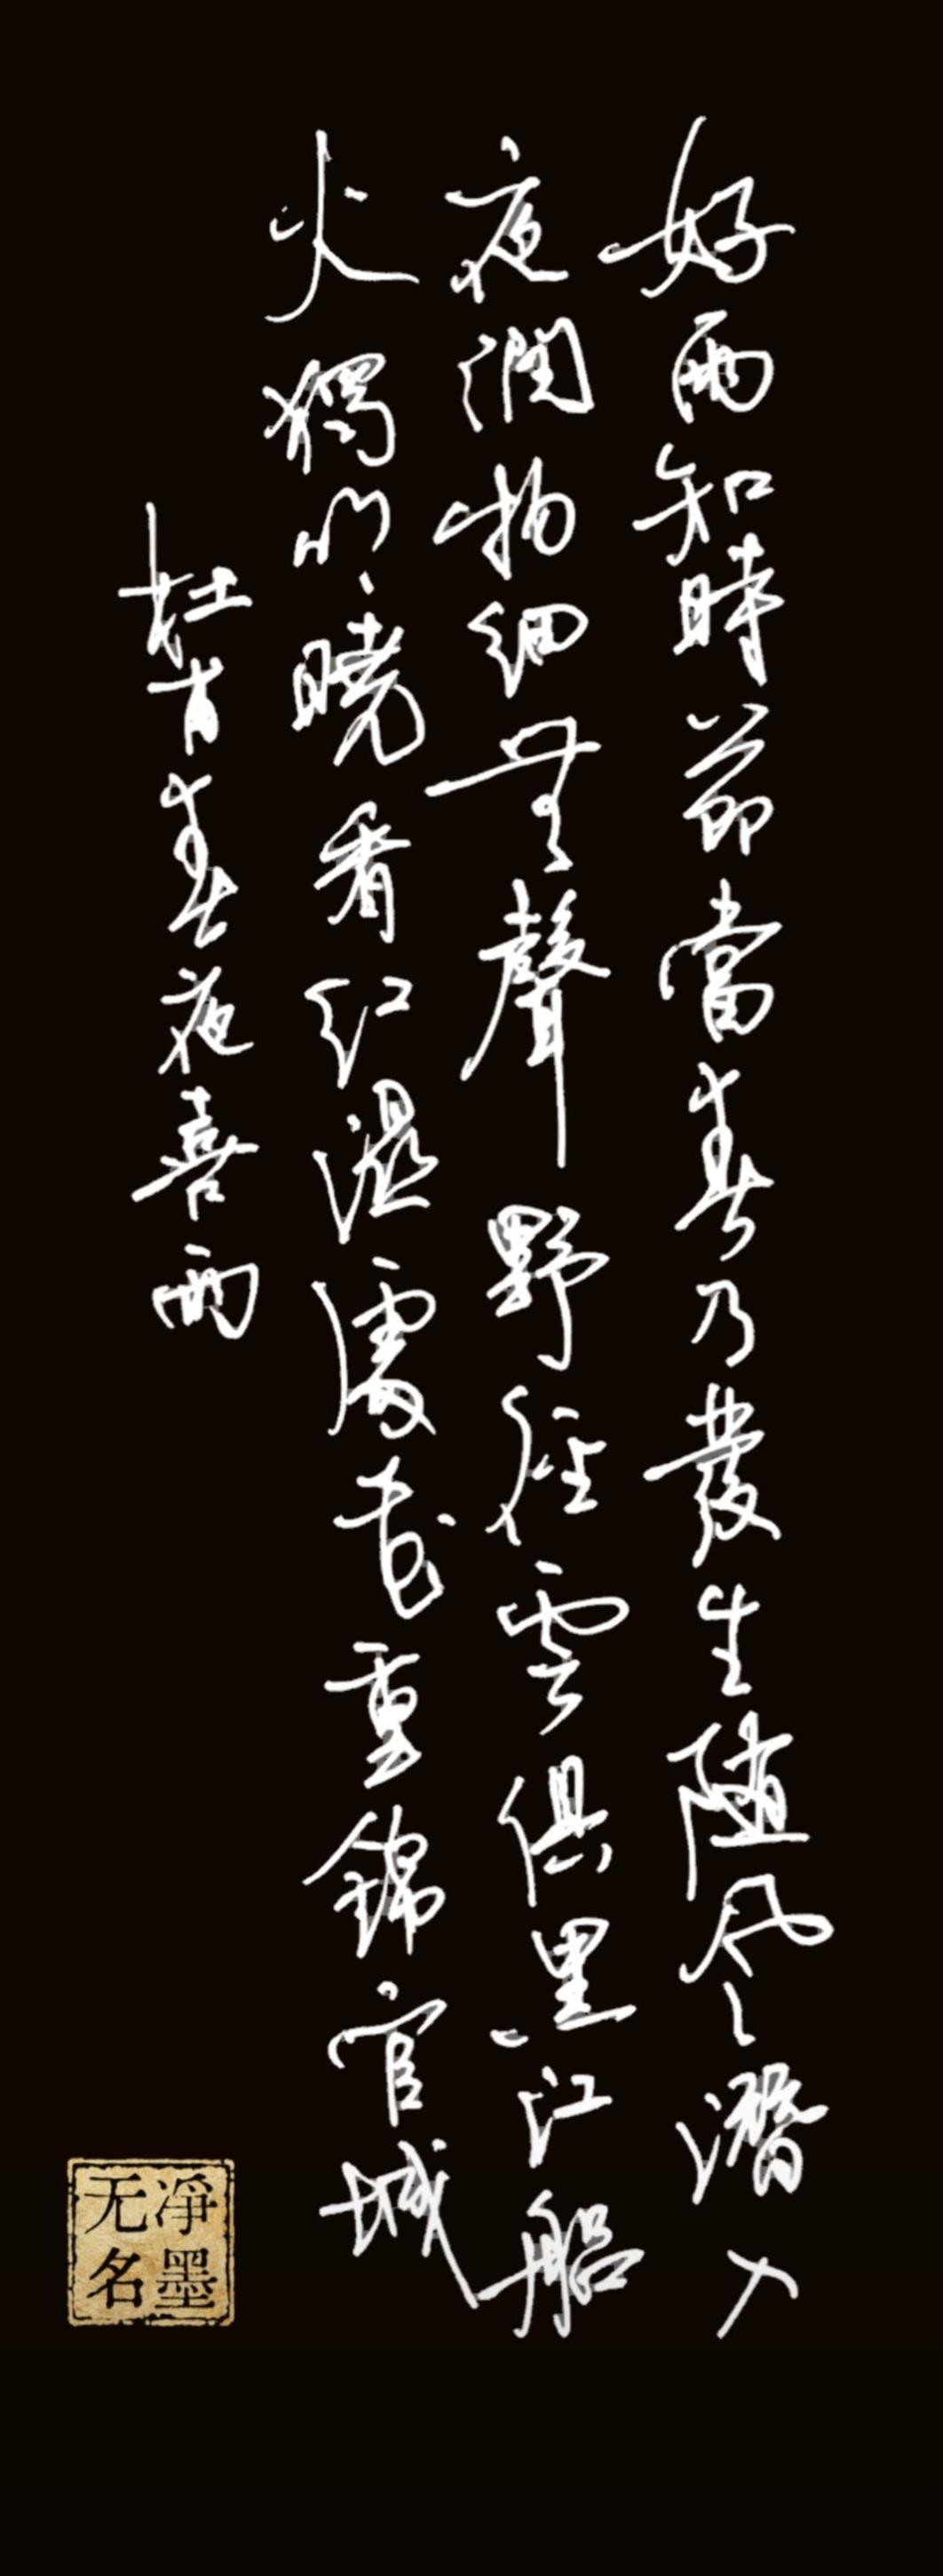 好雨知時節當春乃發生隨風潛入
夜潤物細無聲野徑雲俱黑江船
火獨明曉看紅濕處花重錦官城
杜甫春夜喜雨
凈墨
无名